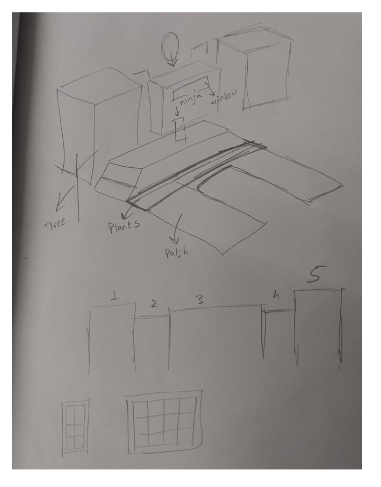 ninja
window
Tree
Plants
Path
1 2 3 4 5